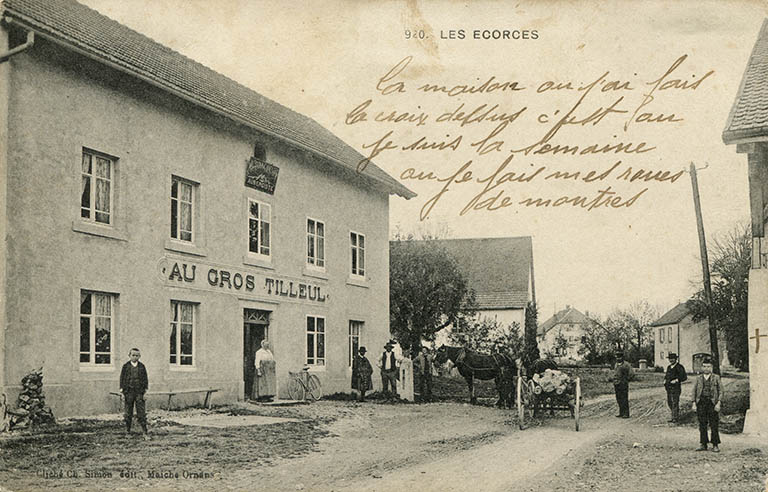 920. LES ECORCES
La maison ou j'ai fais
la croix dessus c'est au
je suis la semaine
ou je fais mes roues
de montres
AUBERGISTE
AU GROS TILLEUL.
Cliché Ch. Simon édit., Maiche Ornans